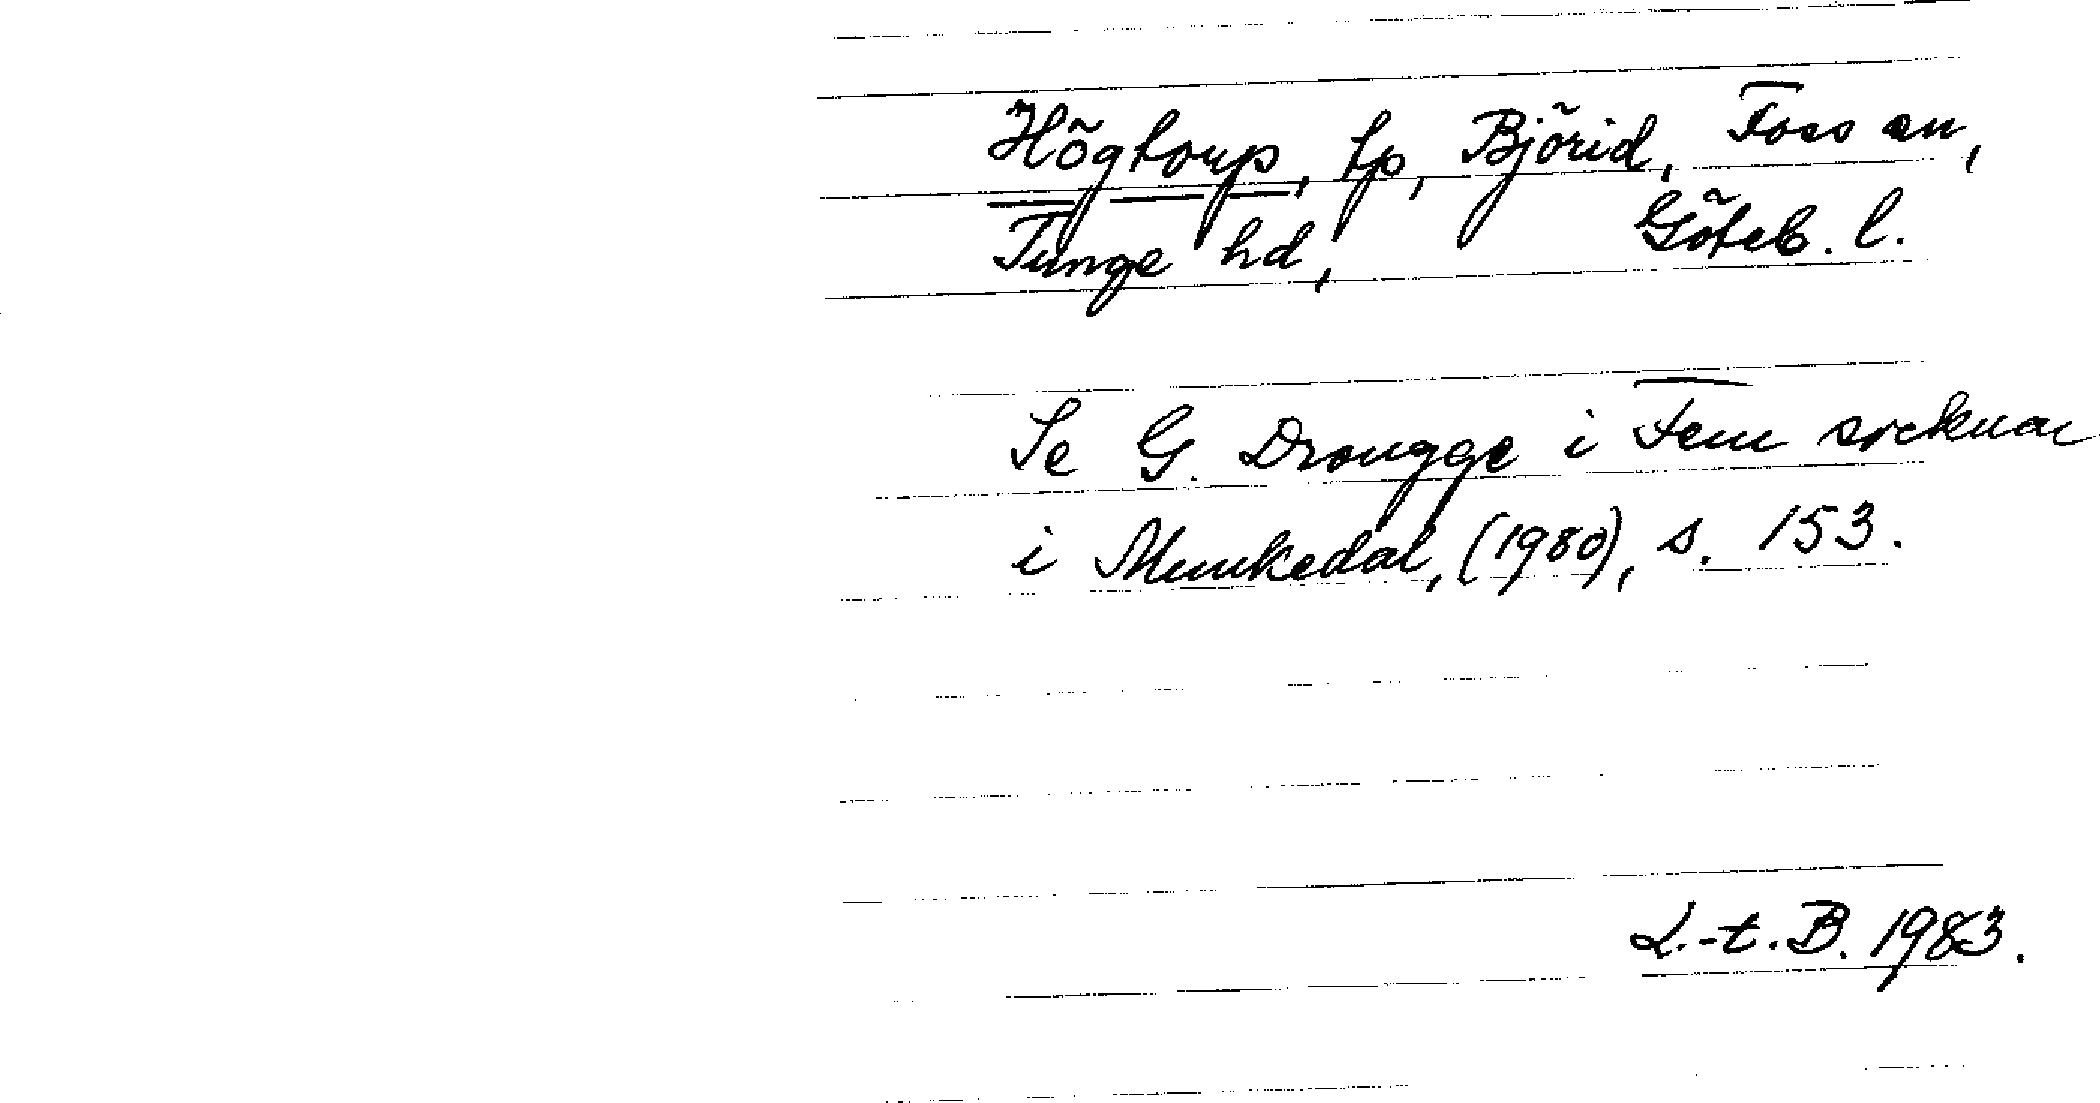 Högtorp, tp, Björid, Foss sn,
Tunge hd, Göteb. l.
Se G. Drougge i Fem socknar
i Munkedal, (1980), s. 153.
L.-t. B. 1983.